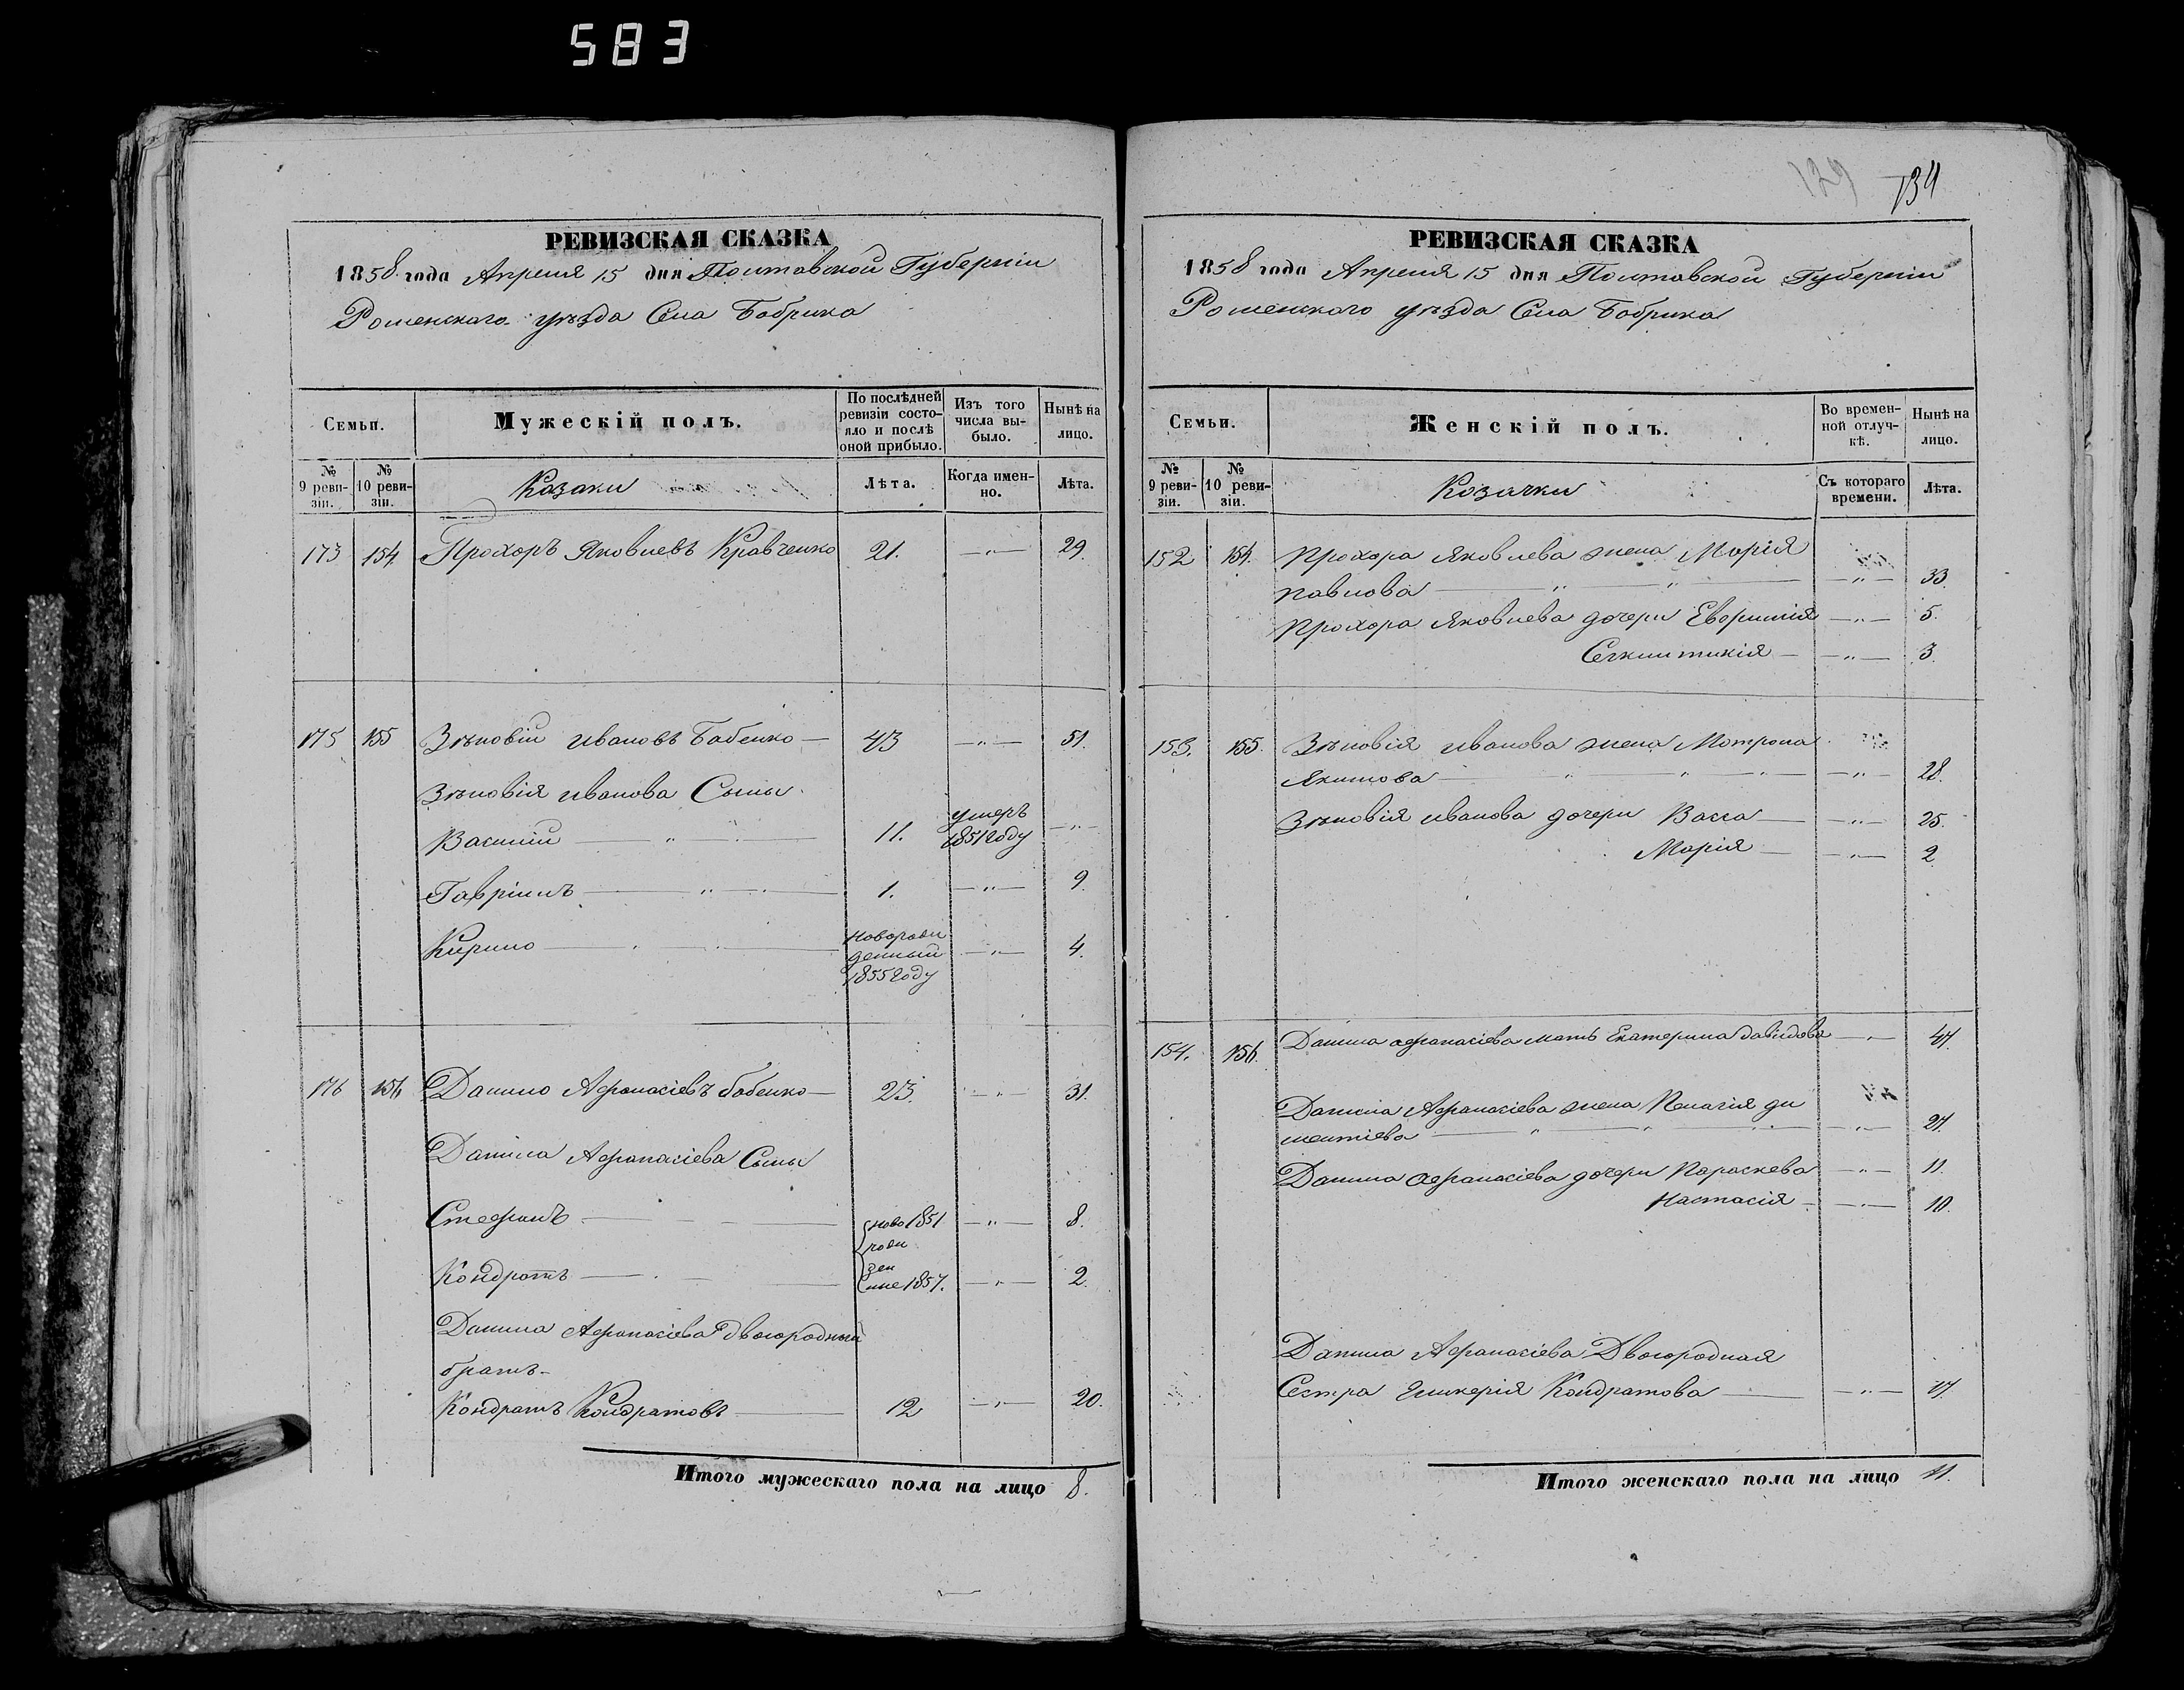 583
129 134
РЕВИЗСКАЯ СКАЗКА
1858 года Апреля 15 дня Полтавской Губерніи
Роменскаго уѣзда Села Бобрика
Семьи.
Мужескій полъ.
По послѣдней ревизіи состояло и послѣ оной прибыло.
Изъ того числа выбыло.
Нынѣ на лицо.
№ 9 ревизіи.
№ 10 ревизіи.
Казаки
Лѣта.
Когда именно.
Лѣта.
173 154. Прохоръ Яковлевъ Кравченко 21. — „ — 29.
175 155 Зѣновій Ивановъ Бабенко — 43 — „ — 51.
Зѣновія Иванова Сыны
Василий — „ — 11. умеръ 1851 году — „ —
Гавріилъ — „ — 1. — „ — 9.
Кирило — „ — новорожденный 1855 году — „ — 4.
176 156 Данило Афанасіевъ Бабенко — 23. — „ — 31.
Данила Афанасіева Сыны
Стефанъ — ново 1851 — „ — 8.
роди
Кондратъ — зен ные 1857. — „ — 2.
Данила Афанасіева двоюродный
братъ —
Кондратъ Кондратовъ — 12 — „ — 20.
Итого мужескаго пола на лицо 8.
РЕВИЗСКАЯ СКАЗКА
1858 года Апреля 15 дня Полтавской Губерніи
Роменскаго уѣзда Села Бобрика
Семьи.
Женскій полъ.
Во временной отлучкѣ.
Нынѣ на лицо.
№ 9 ревизіи.
№ 10 ревизіи.
Козачки
Съ котораго времени.
Лѣта.
152 154. Прохора Яковлева жена Марія
Павлова — „ — „ — — „ — 33.
Прохора Яковлева дочери — „ — 5.
— „ — 3.
153. 155. Зѣновія Иванова жена Мотрона
Якимова — „ — „ — „ — — „ — 28.
Зѣновія Иванова дочери Васса — — „ — 25.
Марія — — „ — 2
154. 156. Данила Афанасіева мать Екатерина Давидова — „ —
Данила Афанасіева жена Пелагія ди
ментіева — „ — „ — — „ —
Данила Афанасіева дочери Параскева — „ — 11.
Настасія — — „ — 10.
Данила Афанасіева Двоюродная
Сестра Гликерія Кондратова — — „ —
Итого женскаго пола на лицо 11.